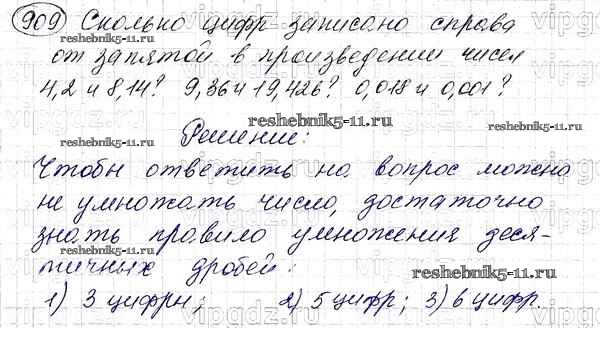 909 Сколько цифр записано справа
reshebnik5-11.ru
от запятой в произведении чисел
4,2 и 8,14? 9,36 и 19,426? 0,018 и 0,001?
reshebnik5-11.ru reshebnik5-11.ru reshebnik5-11.ru
Решение:
Чтобы ответить на вопрос можно
не умножать число, достаточно
reshebnik5-11.ru reshebnik5-11.ru
знать правило умножения деся-
тичных дробей:
reshebnik5-11.ru
1) 3 цифры; 2) 5 цифр; 3) 6 цифр.
vipgdz.ru vipgdz.ru vipgdz.ru